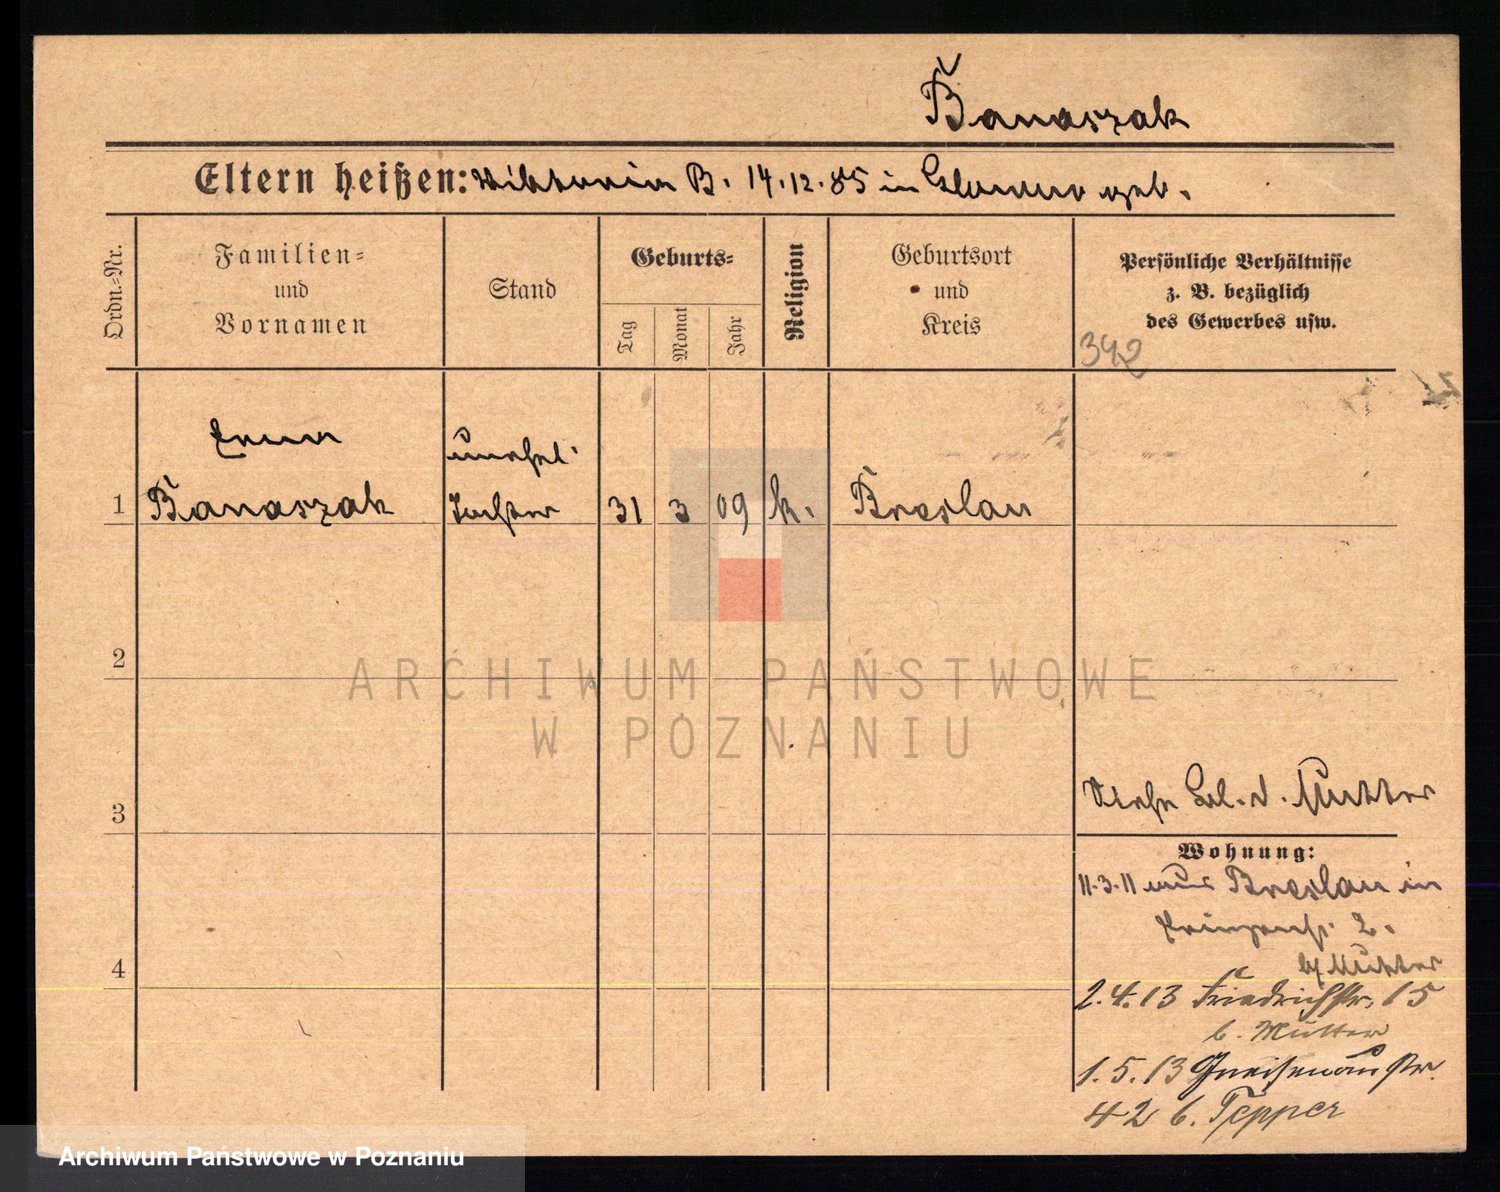 Banaszak
Eltern heißen: Viktoria B. 14.12.85 in geb.
Ordn.-Nr.
Familien-
und
Vornamen
Stand
Geburts-
Tag
Monat
Jahr
Religion
Geburtsort
und
Kreis
Persönliche Verhältnisse
z. B. bezüglich
des Gewerbes usw.
342
unehel.
1 Banaszak Tochter 31 3 09 k. Breslau
2
ARCHIWUM PAŃSTWOWE
W POZNANIU
3
Siehe Bl. d. Mutter
Wohnung:
11.3.11 aus Breslau in
Prinzenstr. 2.
4
b/ Mutter
2.4.13 Friedrichstr. 15
b. Mutter
1.5.13 Gneisenaustr.
42 b. Tepper
Archiwum Państwowe w Poznaniu